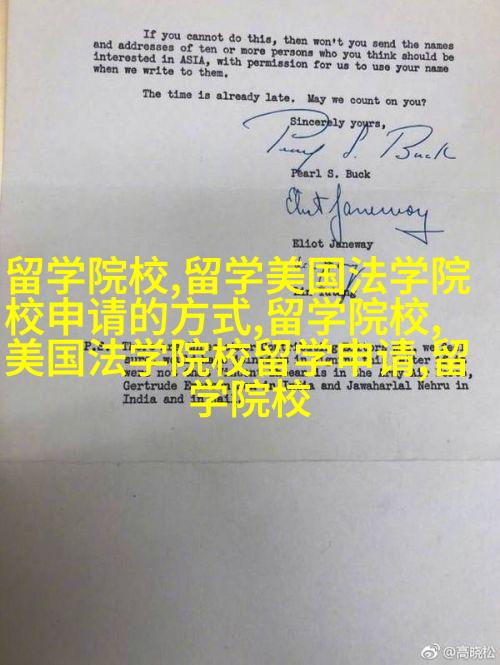 If you cannot do this, then won't you send the names
and addresses of ten or more persons who you think should be
interested in ASIA, with permission for us to use your name
when we write to them.
The time is already late. May we count on you?
Sincerely yours,
Pearl S. Buck
Pearl S. Buck
Eliot Janeway
Eliot Janeway
留学院校,留学美国法学院
校申请的方式,留学院校,
美国法学院校留学申请,留
学院校
Gertrude
and Jawaharlal Nehru in
India and in
@高晓松